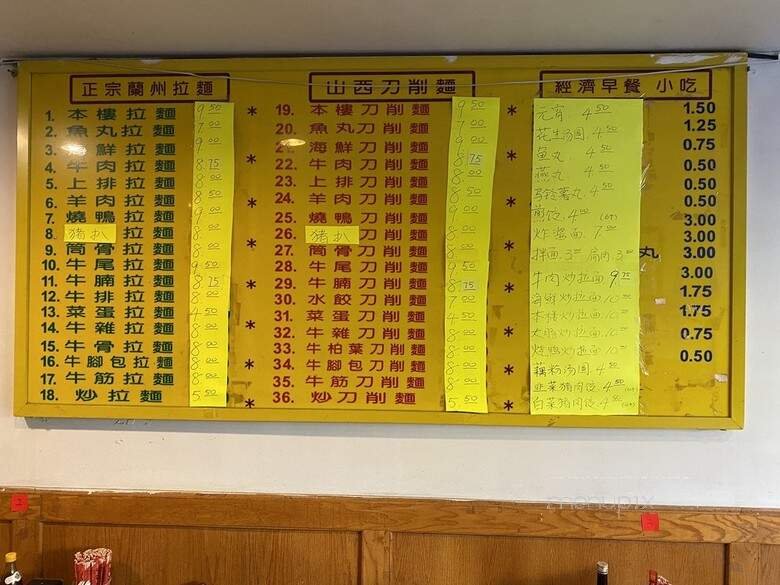 正宗蘭州拉麵
1. 本樓拉麵 9.50
2. 魚丸拉麵 7.00
3. 海鮮拉麵 9.00
4. 牛肉拉麵 8.75
5. 上排拉麵 8.00
6. 羊肉拉麵 8.50
7. 燒鴨拉麵 9.00
8. 猪扒 拉麵 8.00
9. 筒骨拉麵 8.00
10. 牛尾拉麵 9.50
11. 牛腩拉麵 8.75
12. 牛排拉麵 8.00
13. 菜蛋拉麵 4.50
14. 牛雜拉麵 8.00
15. 牛骨拉麵 8.00
16. 牛腳包拉麵 8.00
17. 牛筋拉麵 8.00
18. 炒拉麵 5.50
山西刀削麵
* 19. 本樓刀削麵 9.50
20. 魚丸刀削麵 7.00
海鮮刀削麵 9.00
* 22. 牛肉刀削麵 8.75
23. 上排刀削麵 8.00
* 24. 羊肉刀削麵 8.50
25. 燒鴨刀削麵 9.00
* 26. 猪扒 刀削麵 8.00
27. 筒骨刀削麵 8.00
* 28. 牛尾刀削麵 9.50
29. 牛腩刀削麵 8.75
* 30. 水餃刀削麵 7.00
31. 菜蛋刀削麵 4.50
* 32. 牛雜刀削麵 8.00
33. 牛柏葉刀削麵 8.00
* 34. 牛腳包刀削麵 8.00
35. 牛筋刀削麵 8.00
* 36. 炒刀削麵 5.50
經濟早餐 小吃
元宵 4.50
花生汤圆 4.50
鱼丸 4.50
燕丸 4.50
马铃薯丸 4.50
煎饺 4.00 (6个)
炸酱面 7.00
拌面 3.00 扁肉 3.00
牛肉炒拉面 9.75
海鲜炒拉面 10.00
本楼炒拉面 10.00
大肠炒拉面 10.00
烧鸭炒拉面 10.00
藕粉汤圆 4.50
韭菜猪肉饺 4.50
白菜猪肉饺 4.50
丸
1.50
1.25
0.75
0.50
0.50
3.00
3.00
3.00
3.00
1.75
1.75
0.75
0.50
menupix